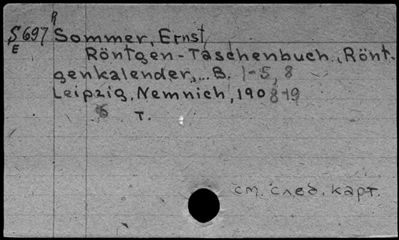 Я
S697 Sommer, Ernst
E
Röntgen-Taschenbuch, Rönt-
genkalender,... B. 1-5, 8
Leipzig, Nemnich, 1908-19
6 т.
см. след. карт.